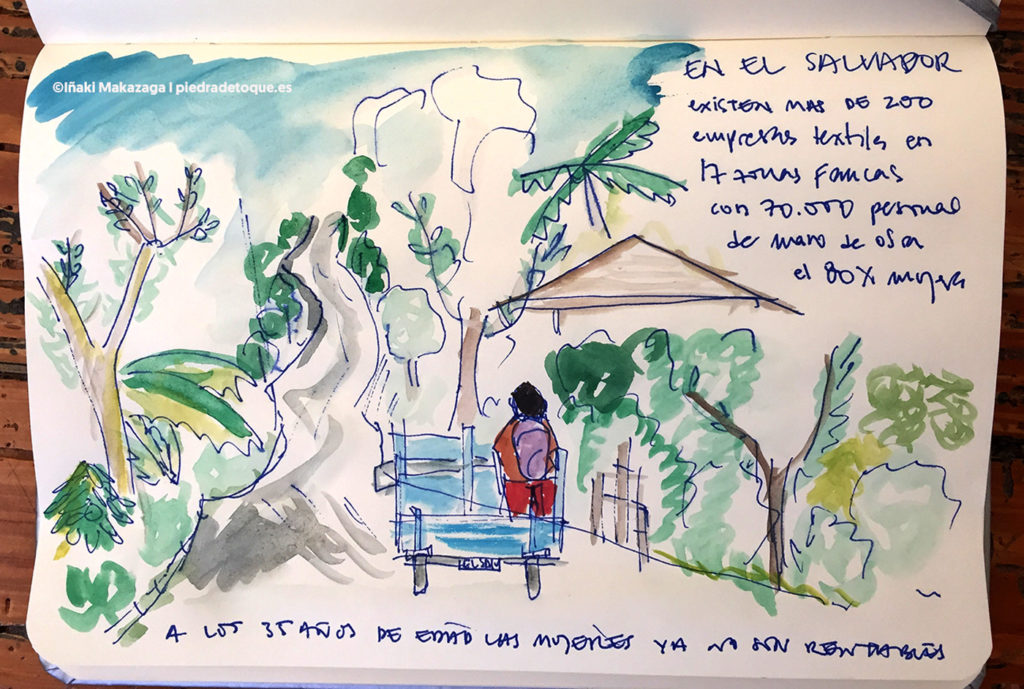 ©Iñaki Makazaga | piedradetoque.es
EN EL SALVADOR
EXISTEN MAS DE 200
empresas textiles en
17 zonas Francas
con 70.000 personal
de mano de obra
el 80% mujeres
A LOS 35 AÑOS DE EDAD LAS MUJERES YA NO SON RENTABLES